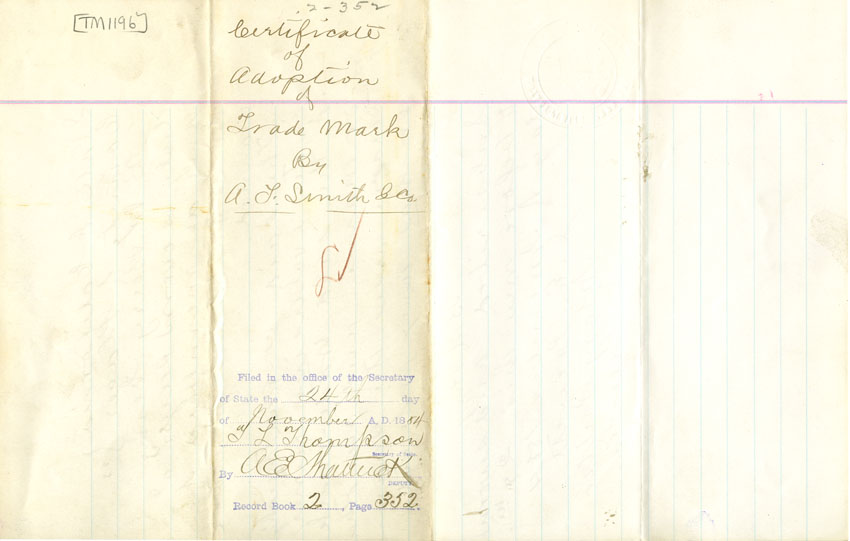 [TM1196]
2-352
Certificate
of
Adoption
of
Trade Mark
By
A. F. Smith & Co.
Filed in the office of the Secretary
of State the 24th day
of November A. D. 1884
T L Thompson
Secretary of State.
By A E Shattuck
DEPUTY
Record Book 2, Page 352.